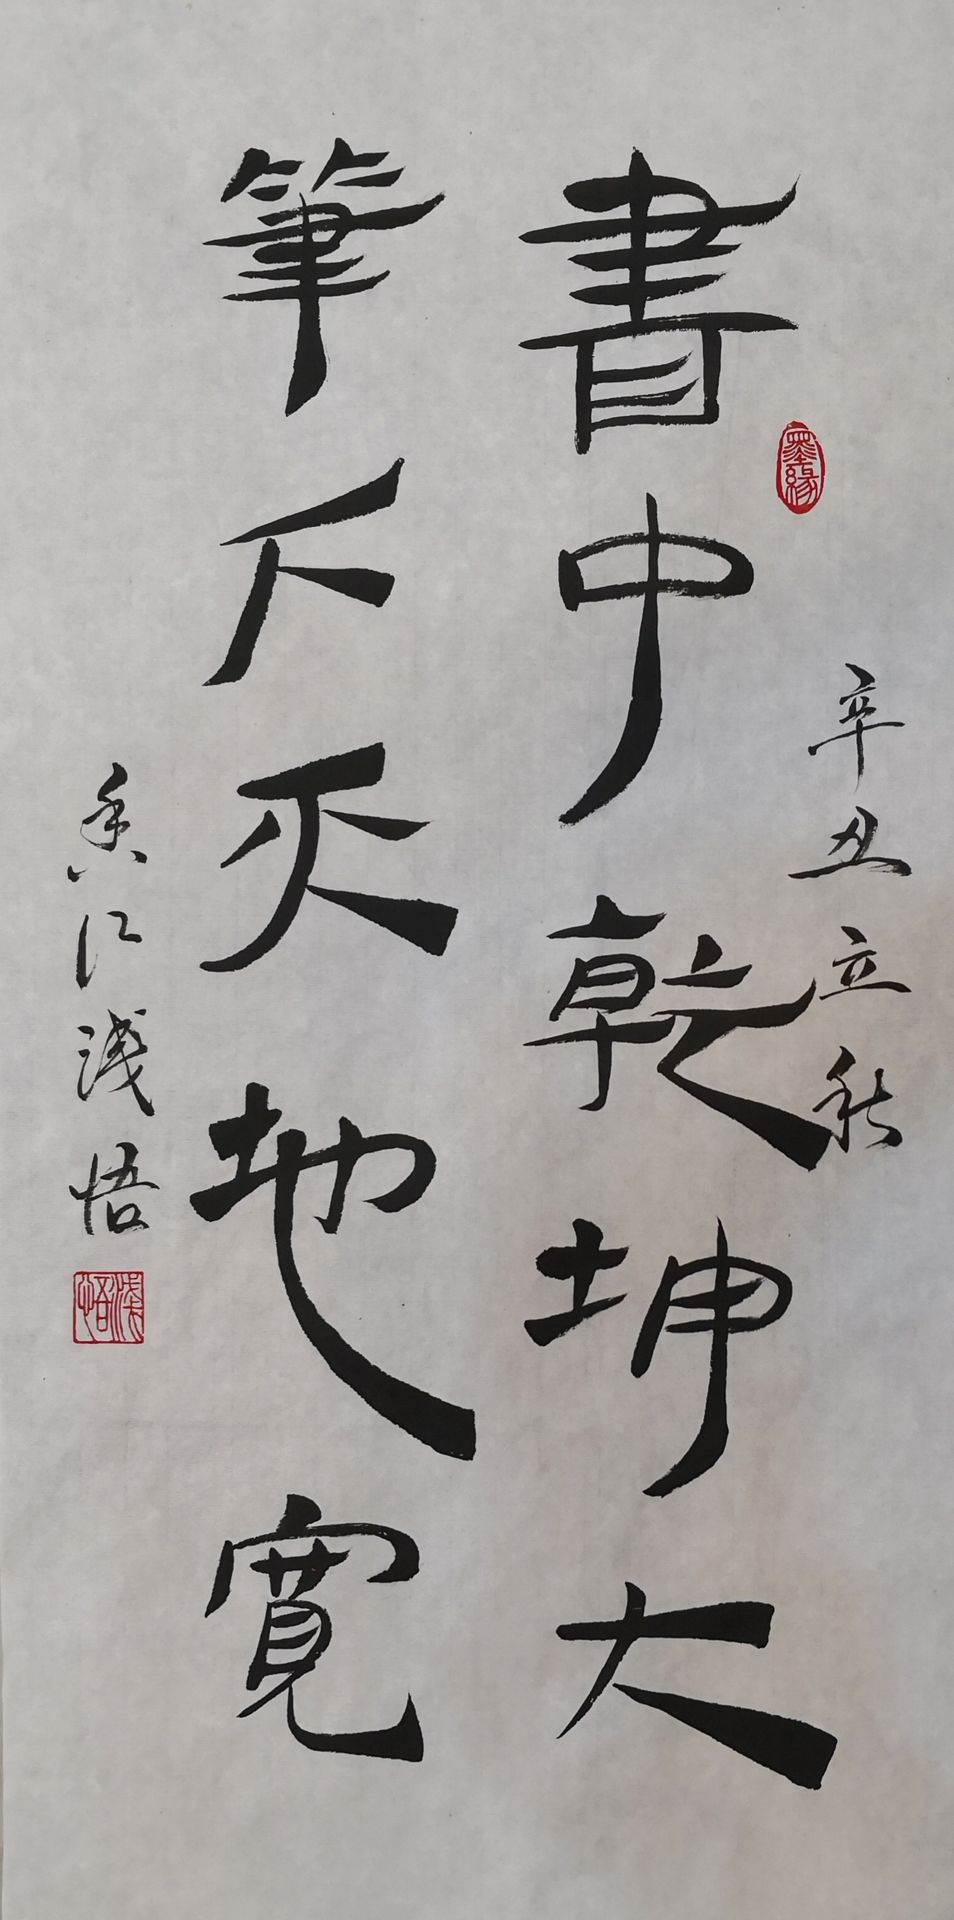 辛丑立秋
墨緣
書中乾坤大
筆下天地寬
香江淺悟
淺悟